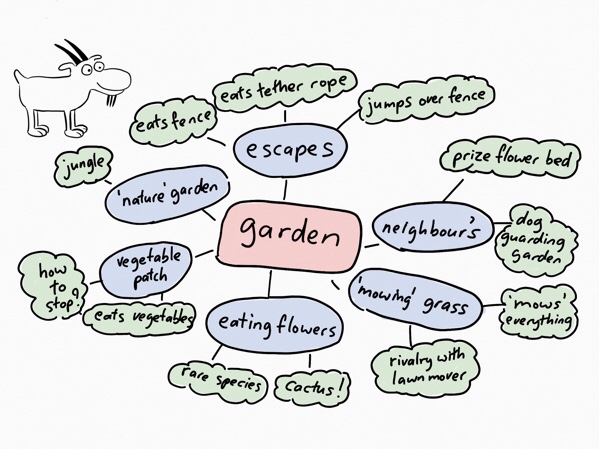 eats tether rope
jumps over fence
eats fence
escapes
prize flower bed
jungle
'nature' garden
garden
neighbour's
dog
guarding
garden
vegetable
patch
how
to
stop?
eats vegetables
'mowing' grass
'mows'
everything
eating flowers
rivalry with
lawn mover
rare species
cactus!